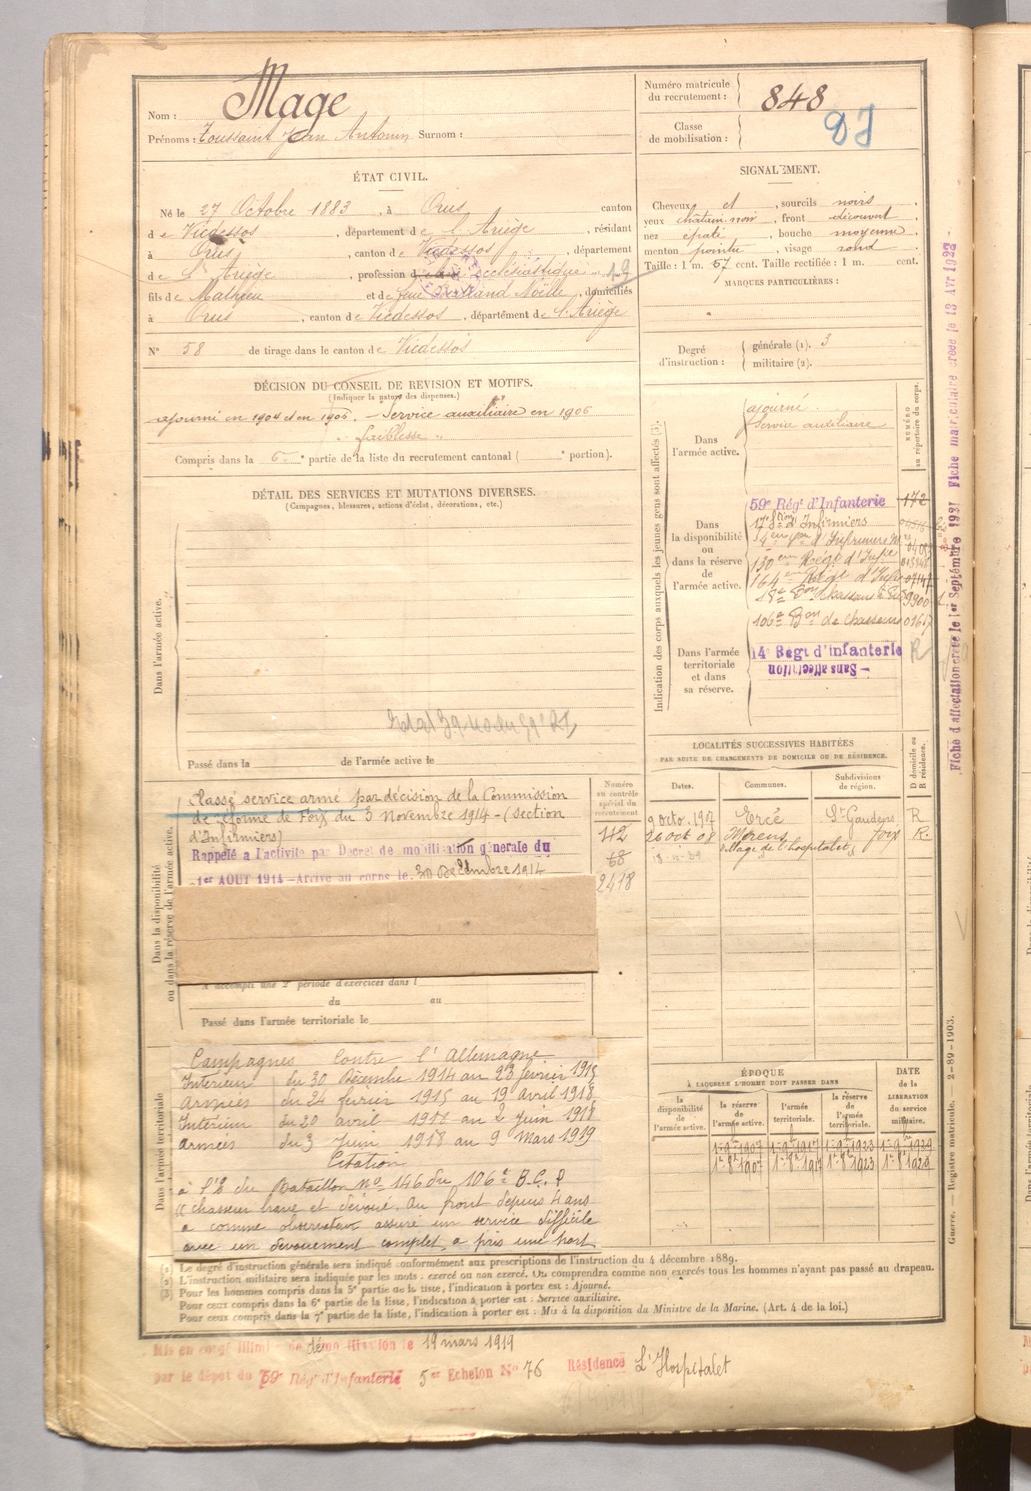 Nom : Mage
Prénoms : Toussaint Jean Antonin Surnom :
Numéro matricule
du recrutement : 848
Classe
de mobilisation :
ÉTAT CIVIL.
Né le 27 Octobre 1883, à Orus canton
de Vicdessos, département de l'Ariège, résidant
à Orus, canton de Vicdessos, département
de l'Ariège, profession d ecclésiastique
fils de Mathieu et de feue Noëlle, domiciliés
à Orus, canton de Vicdessos, département de l'Ariège
N° 58 de tirage dans le canton de Vicdessos
SIGNALEMENT.
Cheveux et, sourcils noirs
yeux châtain-noir, front découvert
nez épaté, bouche moyenne
menton pointu, visage rond
Taille : 1 m. 57 cent. Taille rectifiée : 1 m. cent.
MARQUES PARTICULIÈRES :
Degré
d'instruction :
générale (1). 3
militaire (2).
DÉCISION DU CONSEIL DE REVISION ET MOTIFS.
(Indiquer la nature des dispenses.)
ajourné en 1904 et en 1905. – Service auxiliaire en 1906
" faiblesse "
Compris dans la 6e partie de la liste du recrutement cantonal ( e portion).
DÉTAIL DES SERVICES ET MUTATIONS DIVERSES.
(Campagnes, blessures, actions d'éclat, décorations, etc.)
Dans l'armée active.
Passé dans la de l'armée active le
Indication des corps auxquels les jeunes gens sont affectés (3).
NUMÉRO
au répertoire du corps.
Dans
l'armée active.
ajourné
Service auxiliaire
Dans
la disponibilité
ou
dans la réserve
de
l'armée active.
59e Régt d'Infanterie 172
17e Son d'Infirmiers
130eme Régt d'Infie
164eme Régt d'Infie
18e Bon Chasseurs à Pied
106e Bon de Chasseurs
Dans l'armée
territoriale
et dans
sa réserve.
14e Regt d'infanterie R
– Sans affectation
Fiche d'affectation créée le 1er Septembre 1921 Fiche matriculaire créée le 13 Avr 1922 -
LOCALITÉS SUCCESSIVES HABITÉES
PAR SUITE DE CHANGEMENTS DE DOMICILE OU DE RÉSIDENCE.
D domicile ou
R résidence.
Dates. Communes. Subdivisions
de région.
9 octo. 1907 Ercé St Gaudens R
26 oct 08 Mérens foix R.
village de l'hospitalet
Numéro
au contrôle
spécial du
recrutement
112
68
2478
Dans la disponibilité
ou dans la réserve de l'armée active.
Classé service armé par décision de la Commission
de réforme de Foix du 3 Novembre 1914 – (section
d'Infirmiers)
Rappelé à l'activité par Decret de mobilisation génerale du
1er AOUT 1914 – Arrivé au corps le 30 Décembre 1914
A accompli une 2e période d'exercices dans l
du au
Passé dans l'armée territoriale le
Dans l'armée territoriale
Campagnes Contre l'Allemagne
Intérieur du 30 Décembre 1914 au 23 février 1915
Armées du 24 février 1915 au 19 Avril 1918
Intérieur du 20 avril 1918 au 2 Juin 1918
Armées du 3 Juin 1918 au 9 Mars 1919
Citation
à l'O du Bataillon No 146 du 106e B.C.P
« chasseur brave et dévoué. Au front depuis 4 ans
a comme observateur assuré un service difficile
avec un dévouement complet, a pris une part
ÉPOQUE
À LAQUELLE L'HOMME DOIT PASSER DANS
DATE
de la
LIBÉRATION
du service
militaire.
la
disponibilité
de
l'armée active.
la réserve
de
l'armée active.
l'armée
territoriale.
la réserve
de
l'armée
territoriale.
1er 9bre 1907 1er 9bre 1917 1er 9bre 1923 1er 9bre 1929
1er 8bre 1907 1er 8bre 1917 1er 8bre 1923 1er 8bre 1929
Guerre. — Registre matricule. 2-89-1903.
(1) Le degré d'instruction générale sera indiqué conformément aux prescriptions de l'instruction du 4 décembre 1889.
(2) L'instruction militaire sera indiquée par les mots : exercé ou non exercé. On comprendra comme non exercés tous les hommes n'ayant pas passé au drapeau.
(3) Pour les hommes compris dans la 5e partie de la liste, l'indication à porter est : Ajourné.
Pour ceux compris dans la 6e partie de la liste, l'indication à porter est : Service auxiliaire.
Pour ceux compris dans la 7e partie de la liste, l'indication à porter est : Mis à la disposition du Ministre de la Marine. (Art. 4 de la loi.)
Mis en congé illimité de démobilisation le 19 mars 1919
par le dépôt du 59e Régt d'Infanterie 5er Echelon No 76 Résidence L'Hospitalet